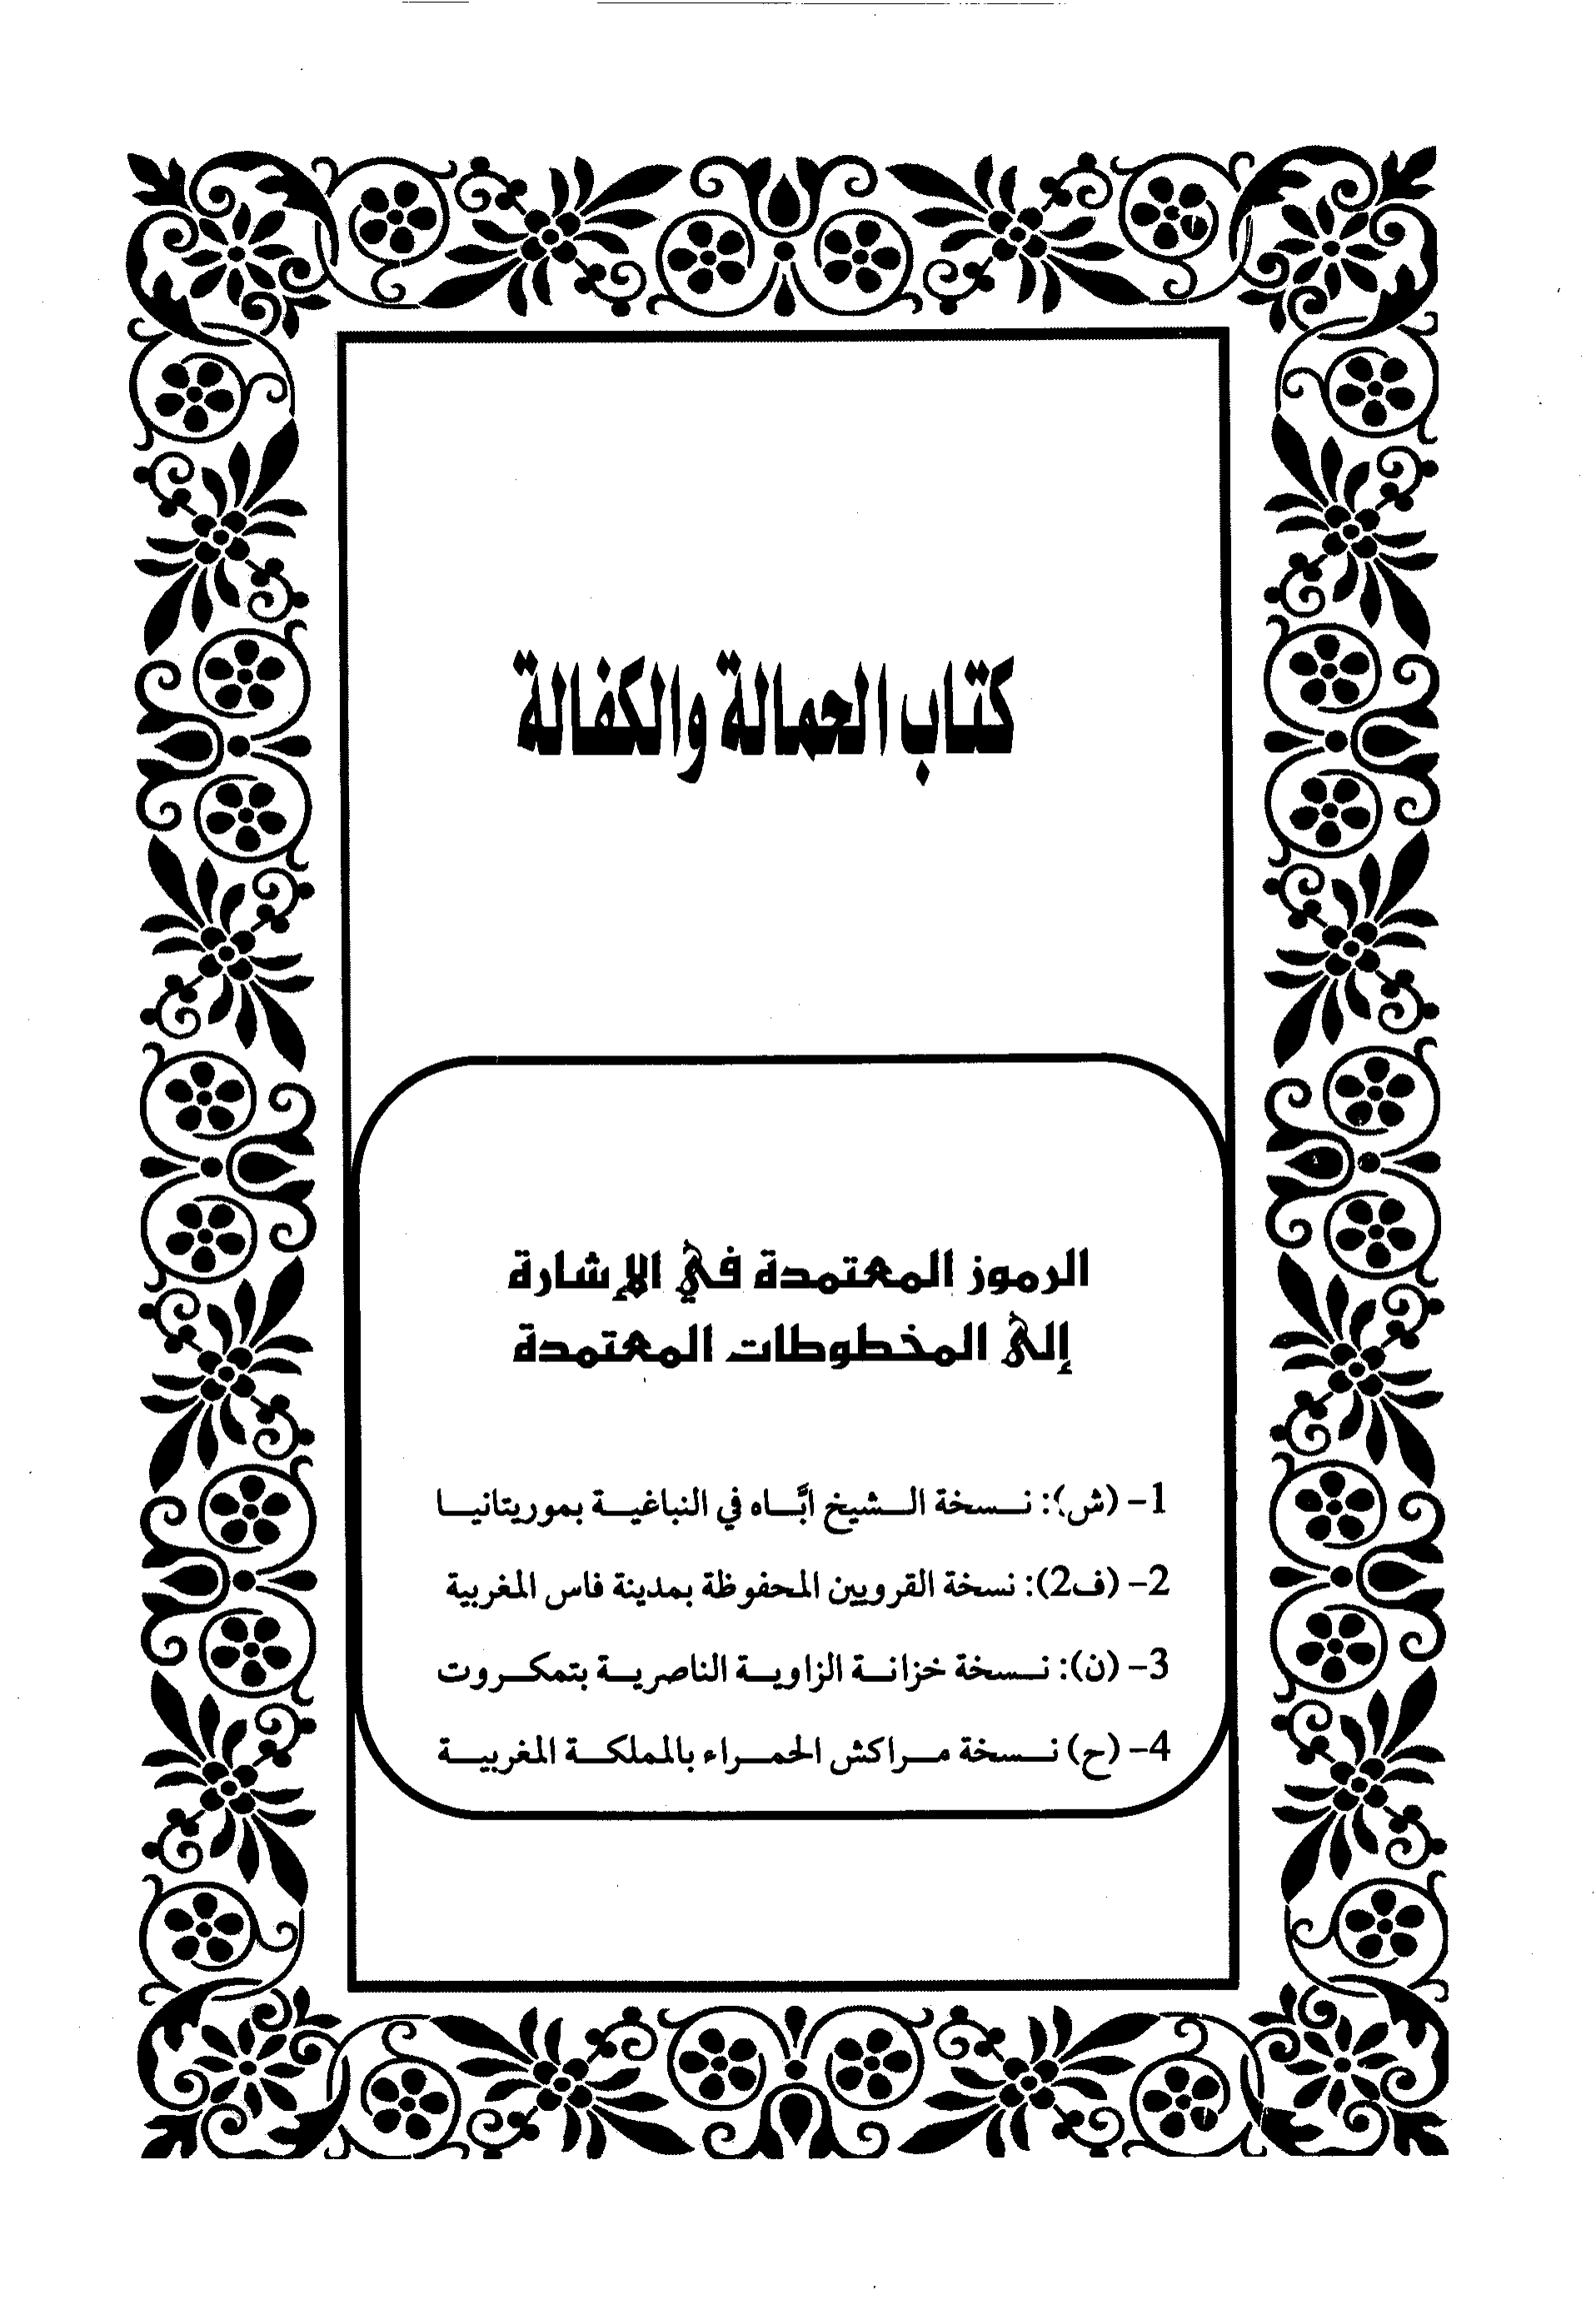 كتاب الحمالة والكفالة
الرموز المعتمدة في الإشارة
إلى المخطوطات المعتمدة
1- (ش): نسخة الشيخ ابَّاه في النباغية بموريتانيا
2- (ف2): نسخة القرويين المحفوظة بمدينة فاس المغربية
3- (ن): نسخة خزانة الزاوية الناصرية بتمكروت
4- (ح) نسخة مراكش الحمراء بالمملكة المغربية